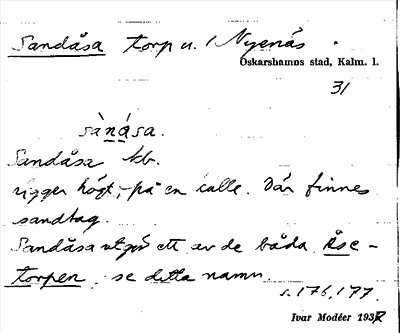 Sandåsa torp u. / Nyenäs.
Oskarshamns stad, Kalm. l.
31
sànása.
Sandåsa kb.
ligger högt, på en calle. Där finnes
sandtag.
Sandåsa utgör ett av de båda Åse-
torpen, se detta namn.
s. 176, 177.
Ivar Modéer 1937